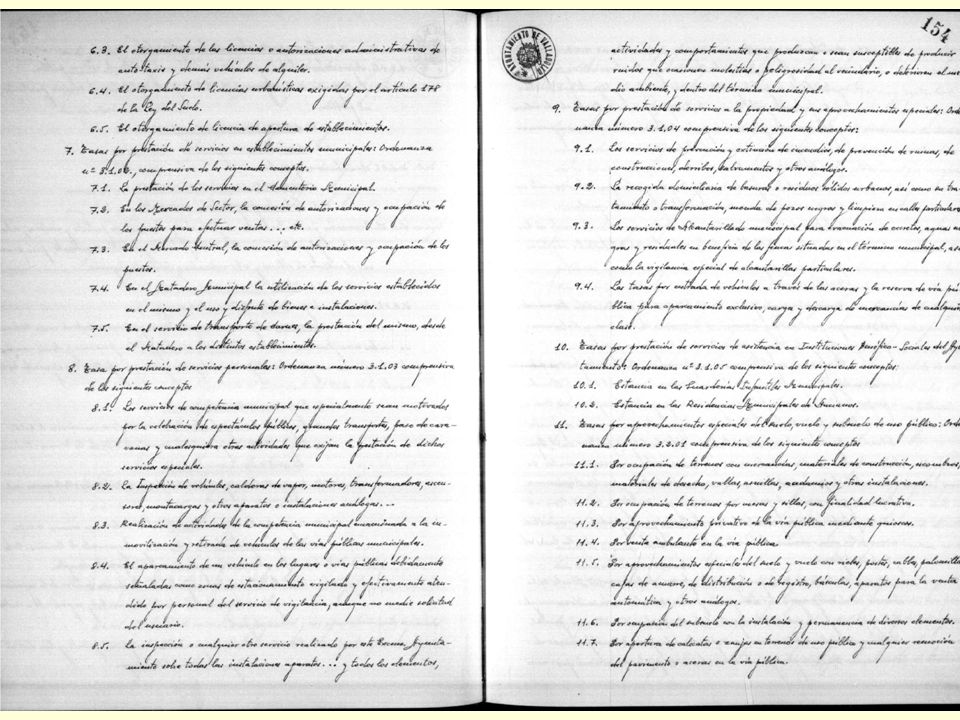 6.3. El otorgamiento de las licencias o autorizaciones administrativas de
auto-taxis y demás vehículos de alquiler.
6.4. El otorgamiento de licencias urbanísticas exigidas por el artículo 178
de la Ley del Suelo.
6.5. El otorgamiento de licencia de apertura de establecimientos.
7. Tasas por prestación de servicios en establecimientos municipales: Ordenanza
nº 3.1.02., comprensiva de los siguientes conceptos.
7.1. La prestación de los servicios en el Cementerio Municipal.
7.2. En los Mercados de Sector, la concesión de autorizaciones y ocupación de
los puestos para efectuar ventas ... etc.
7.3. En el Mercado Central, la concesión de autorizaciones y ocupación de los
puestos.
7.4. En el Matadero Municipal la utilización de los servicios establecidos
en el mismo y el uso y disfrute de bienes e instalaciones.
7.5. En el servicio de transporte de carnes, la prestación del mismo, desde
el Matadero a los distintos establecimientos.
8. Tasa por prestación de servicios personales: Ordenanza número 3.1.03 comprensiva
de los siguientes conceptos
8.1. Los servicios de competencia municipal que especialmente sean motivados
por la celebración de espectáculos públicos, grandes transportes, paso de cara-
vanas y cualesquiera otras actividades que exijan la prestación de dichos
servicios especiales.
8.2. La Inspección de vehículos, calderas de vapor, motores, transformadores, ascen-
sores, montacargas y otros aparatos o instalaciones análogas...
8.3. Realización de actividades de la competencia municipal encaminada a la in-
movilización y retirada de vehículos de las vías públicas municipales.
8.4. El aparcamiento de un vehículo en los lugares o vías públicas debidamente
señaladas como zonas de estacionamiento vigilado y efectivamente aten-
dido por personal del servicio de vigilancia, aunque no medie solicitud
del usuario.
8.5. La inspección o cualquier otro servicio realizado por este Excmo. Ayunta-
miento sobre todas las instalaciones aparatos... y todos los elementos,
154
AYUNTAMIENTO DE VALLADOLID
actividades y comportamientos que produzcan o sean susceptibles de producir
ruidos que ocasionen molestias o peligrosidad al vecindario, o deterioren al me-
dio ambiente, y dentro del término municipal.
9. Tasas por prestación de servicios a la propiedad, y sus aprovechamientos especiales: Orde-
nanza número 3.1.04 comprensiva de los siguientes conceptos:
9.1. Los servicios de prevención y extinción de incendios, de prevención de ruinas, de
construcciones, derribos, salvamentos y otros análogos.
9.2. La recogida domiciliaria de basuras o residuos sólidos urbanos, así como su tra-
tamiento o transformación, monda de pozos negros y limpieza en calles particulares.
9.3. Los servicios de Alcantarillado municipal para evacuación de excretas, aguas ne-
gras y residuales en beneficio de las fincas situadas en el término municipal, así
como la vigilancia especial de alcantarillas particulares.
9.4. Las tasas por entrada de vehículos a través de las aceras y la reserva de vía pú-
blica para aparcamiento exclusivo, carga y descarga de mercancías de cualquier
clase.
10. Tasas por prestación de servicios de asistencia en Instituciones Benéfico-Sociales del Ayun-
tamiento: Ordenanza nº 3.1.05 comprensiva de los siguientes conceptos:
10.1. Estancia en las Guarderías Infantiles Municipales.
10.2. Estancia en las Residencias Municipales de Ancianos.
11. Tasas por aprovechamientos especiales del suelo, vuelo y subsuelo de uso público: Orde-
nanza número 3.2.01 comprensiva de los siguientes conceptos
11.1. Por ocupación de terrenos con mercancías, materiales de construcción, escombros,
materiales de desecho, vallas, asnillas, andamios y otras instalaciones.
11.2. Por ocupación de terrenos por mesas y sillas, con finalidad lucrativa.
11.3. Por aprovechamiento privativo de la vía pública mediante quioscos.
11.4. Por venta ambulante en la vía pública.
11.5. Por aprovechamientos especiales del suelo y vuelo con rieles, postes, cables, palomillas,
cajas de amarre, de distribución o de registro, básculas, aparatos para la venta
automática y otros análogos.
11.6. Por ocupación del subsuelo con la instalación y permanencia de diversos elementos.
11.7. Por apertura de calicatas o zanjas en terrenos de uso público y cualquier remoción
del pavimento o aceras en la vía pública.